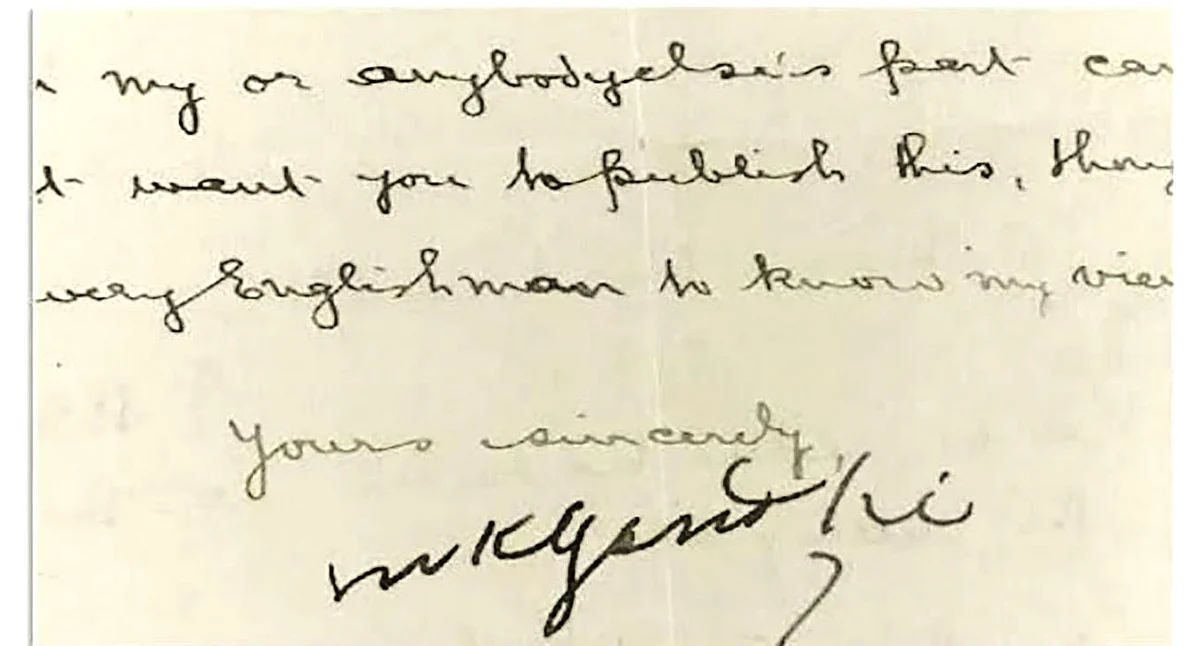 my or anybodyelse's part
want you to publish this, thoug
very Englishman to know my view
Yours sincerely,
MKGandhi